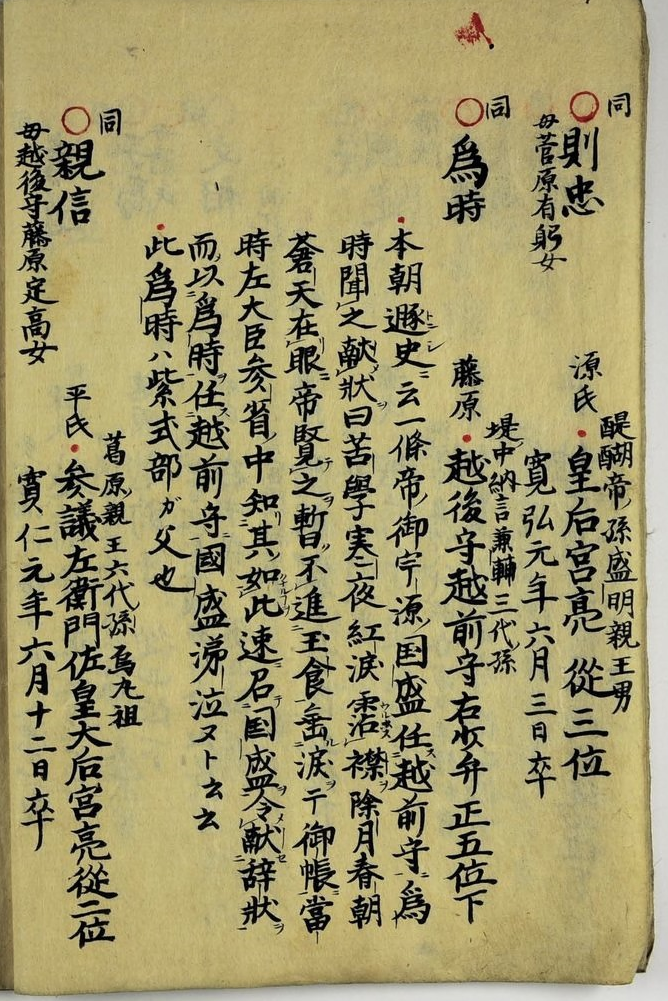 同
則忠
母菅原有躬女
醍醐帝孫盛明親王男
源氏
皇后宮亮從三位
寬弘元年六月三日卒
同
為時
堤中納言兼輔三代孫
藤原
越後守越前守右少弁正五位下
本朝遯史ニ云一條帝ノ御宇源ノ国盛任越前守為
時聞之献状曰苦學寒夜紅淚霑襟除月春朝
蒼天在眼帝覧之暫不進玉食垂淚于御帳當
時左大臣参省中知其如此速召国盛令献辞状
而以為時任越前守國盛涕泣スト云云
此為時ハ紫式部ガ父也
同
親信
母越後守藤原定高女
葛原親王六代孫烏丸祖
平氏
参議左衛門佐皇大后宮亮從二位
寬仁元年六月十二日卒